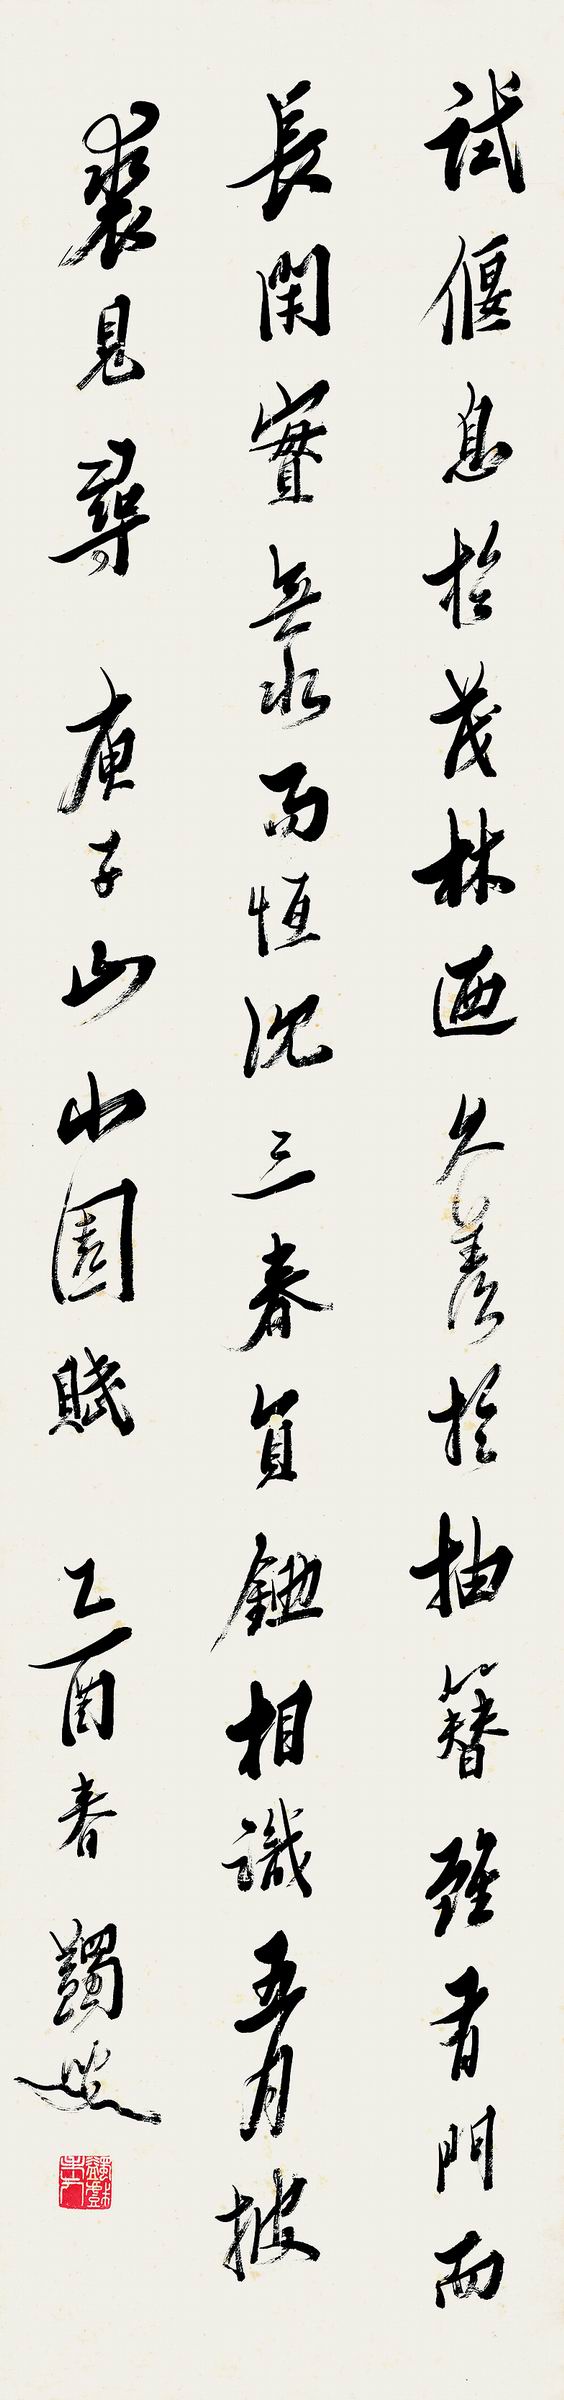 試偃息於茂林迺久羨於抽簪雖有門而
長閉實無水而恒沈三春負鋤相識五月披
裘見尋 庾子山小園賦 乙酉春 蠲叟